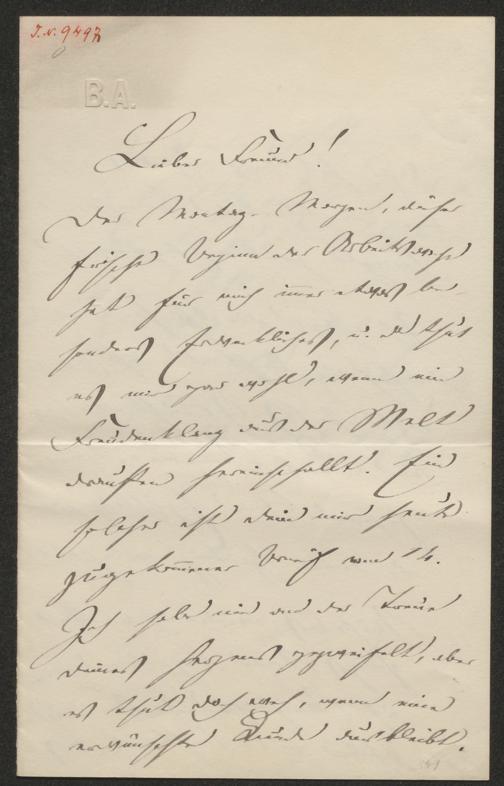 J.N. 9497
B.A.
Lieber Freund!
Der Montag-Morgen, dieser
frische Beginn der Arbeitswoche
hat für mich immer etwas be-
sonders Erquickliches, u. da thut
es mir gar wohl, wenn ein
Freudenklang aus der Welt
draußen hereinschallt. Ein
solcher ist dein mir heute
zugekommener Brief vom 14.
Ich habe nie an der Treue
deines Herzens gezweifelt, aber
es thut doch weh, wenn eine
erwünschte Kunde ausbleibt.